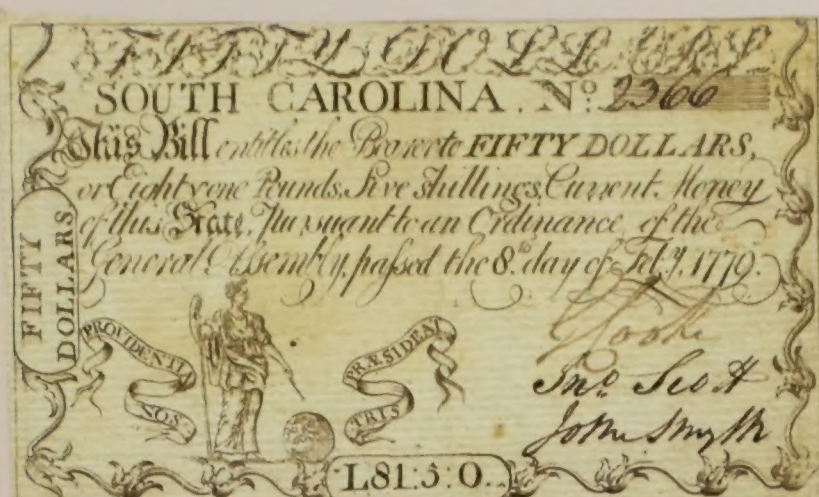 FIFTY DOLLARS
SOUTH CAROLINA. Nº. 2366
This Bill entitles the Bearer to FIFTY DOLLARS,
or Eighty one Pounds, Five Shillings, Current Money
of this State, Pursuant to an Ordinance of the
General Assembly, passed the 8.th day of Feb.y, 1779.
FIFTY
DOLLARS
PROVIDENTIA
NOS
PRÆSIDEAT
TRIS
Jnº Scott
John Smyth
L81:5:0.